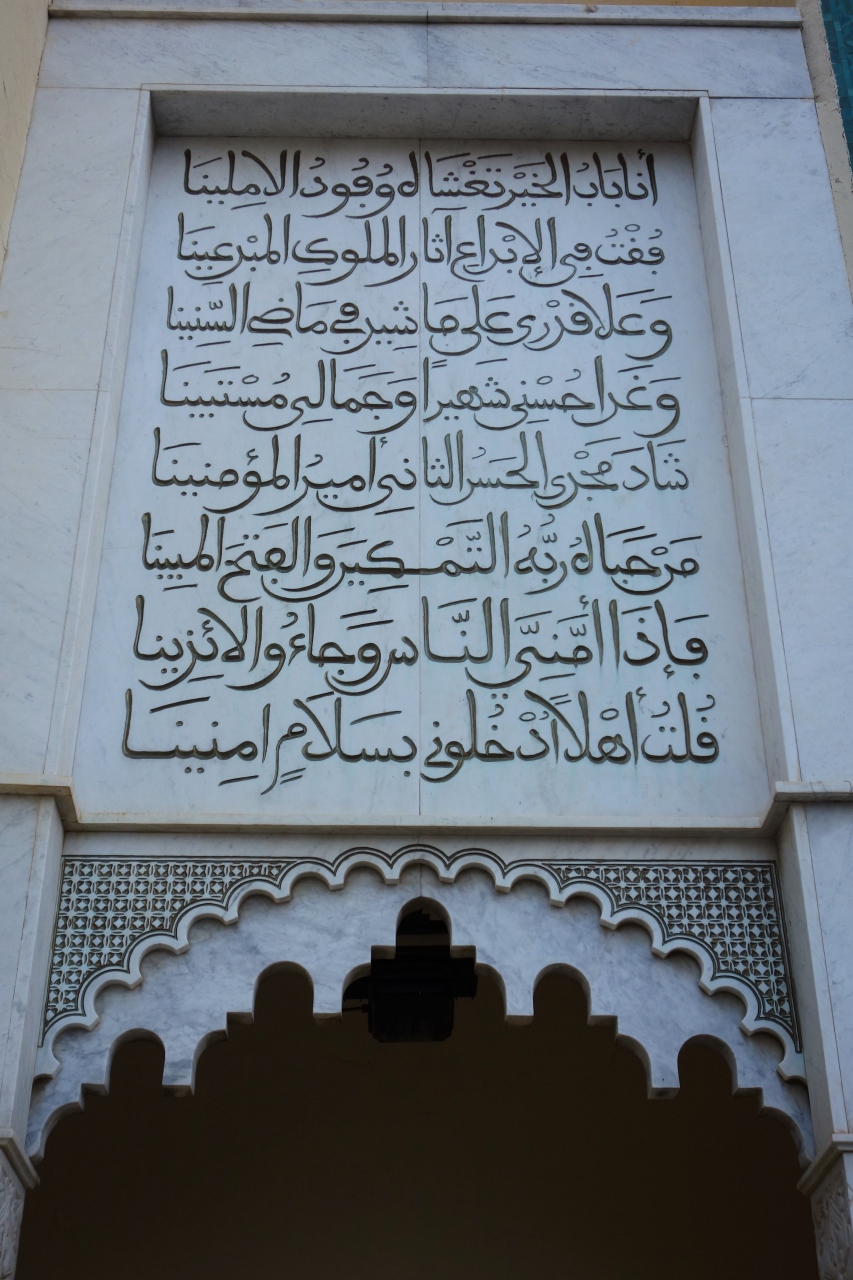 أنا بَابُ الخَيْر تَغْشَاه وُفُودُ الامِلِينَا
فُقْتُ فِي الإِبْدَاعِ آثَار الملُوكِ المبْدعِينَا
وَعَلا قَدْرِي عَلَى مَا شِيدَ فِي مَاضِي السِّنِينا
وَغَدا حُسْنِي شَهِيراً وَجَمَالِي مُسْتَبِينَا
شَادَ مَجْدِي الحَسَنُ الثانِي أمِيرُ المؤمِنِينَا
مُذْ حَبَاهُ رَبُّهُ التَّمْكِينَ وَالفَتْحَ المبِينَا
فَإِذَا أَمَّنِيَ النَّاس وَجَاءُوا لائِذِينا
قُلتُ أهْلاً ادْخُلُونِي بسَلامٍ امِنِينَا